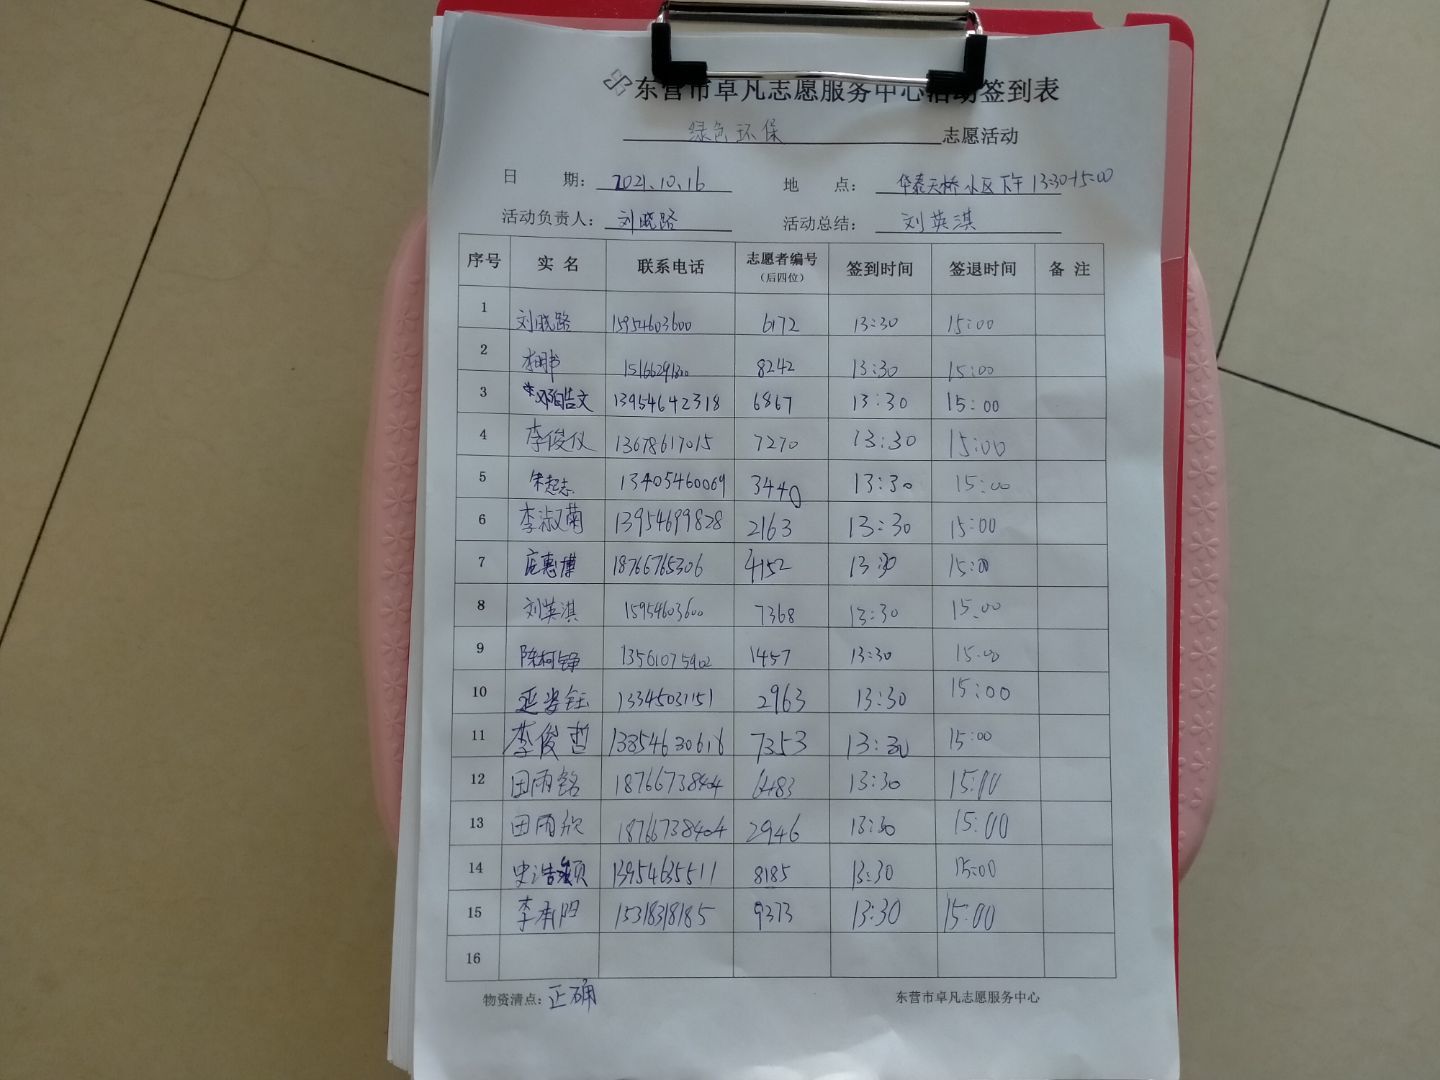 东营市卓凡志愿服务中心活动签到表
绿色环保 志愿活动
日 期: 2021.10.16 地 点: 华泰天桥小区下午13:30-15:00
活动负责人: 刘晓路 活动总结: 刘英淇
序号 实 名 联系电话 志愿者编号 (后四位) 签到时间 签退时间 备 注
1 刘晓路 15954603600 6172 13:30 15:00
2 8242 13:30 15:00
3 13954642318 6867 13:30 15:00
4 李俊仪 13678617015 7270 13:30 15:00
5 宋起志 13405460069 3440 13:30 15:00
6 李淑菊 13954699828 2163 13:30 15:00
7 18766765306 4152 13:30 15:00
8 刘英淇 15954603600 7368 13:30 15.00
9 陈柯铮 13561075902 1457 13:30 15:00
10 13345031151 2963 13:30 15:00
11 李俊哲 13854630616 7353 13:30 15:00
12 田雨铭 18766738404 6483 13:30 15:00
13 田雨欣 18766738404 2946 13:30 15:00
14 13954635511 8185 13:30 15:00
15 李承阳 15318318185 9373 13:30 15:00
16
物资清点: 正确 东营市卓凡志愿服务中心